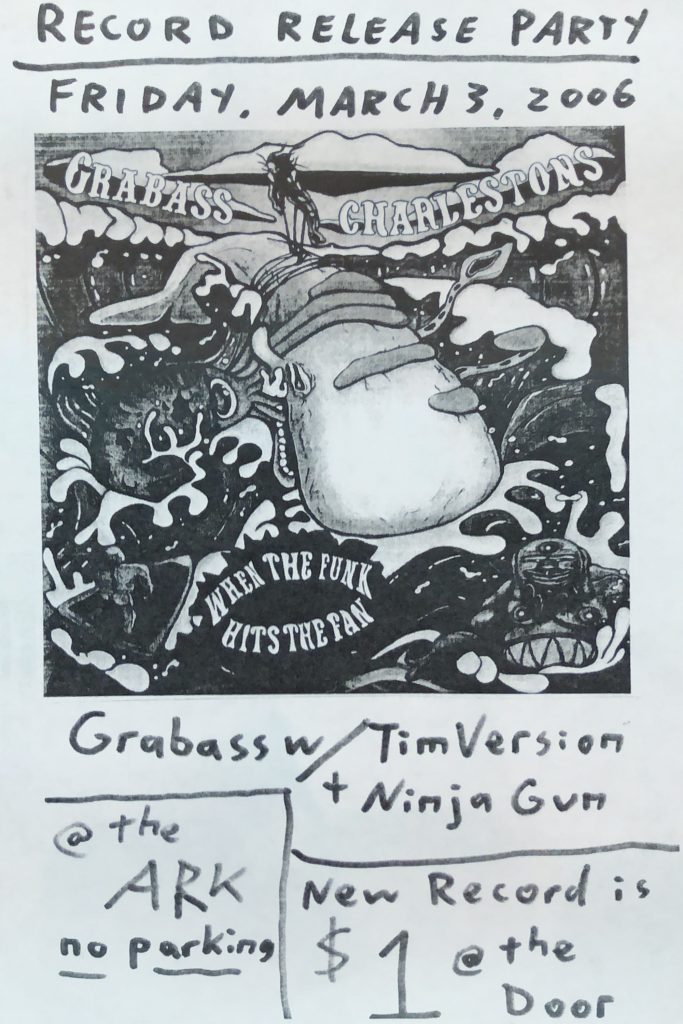 RECORD RELEASE PARTY
FRIDAY, MARCH 3, 2006
GRABASS CHARLESTONS
WHEN THE FUNK
HITS THE FAN
Grabass w/ Tim Version
+ Ninja Gun
@ the
ARK
no parking
New Record is
$1 @ the
Door